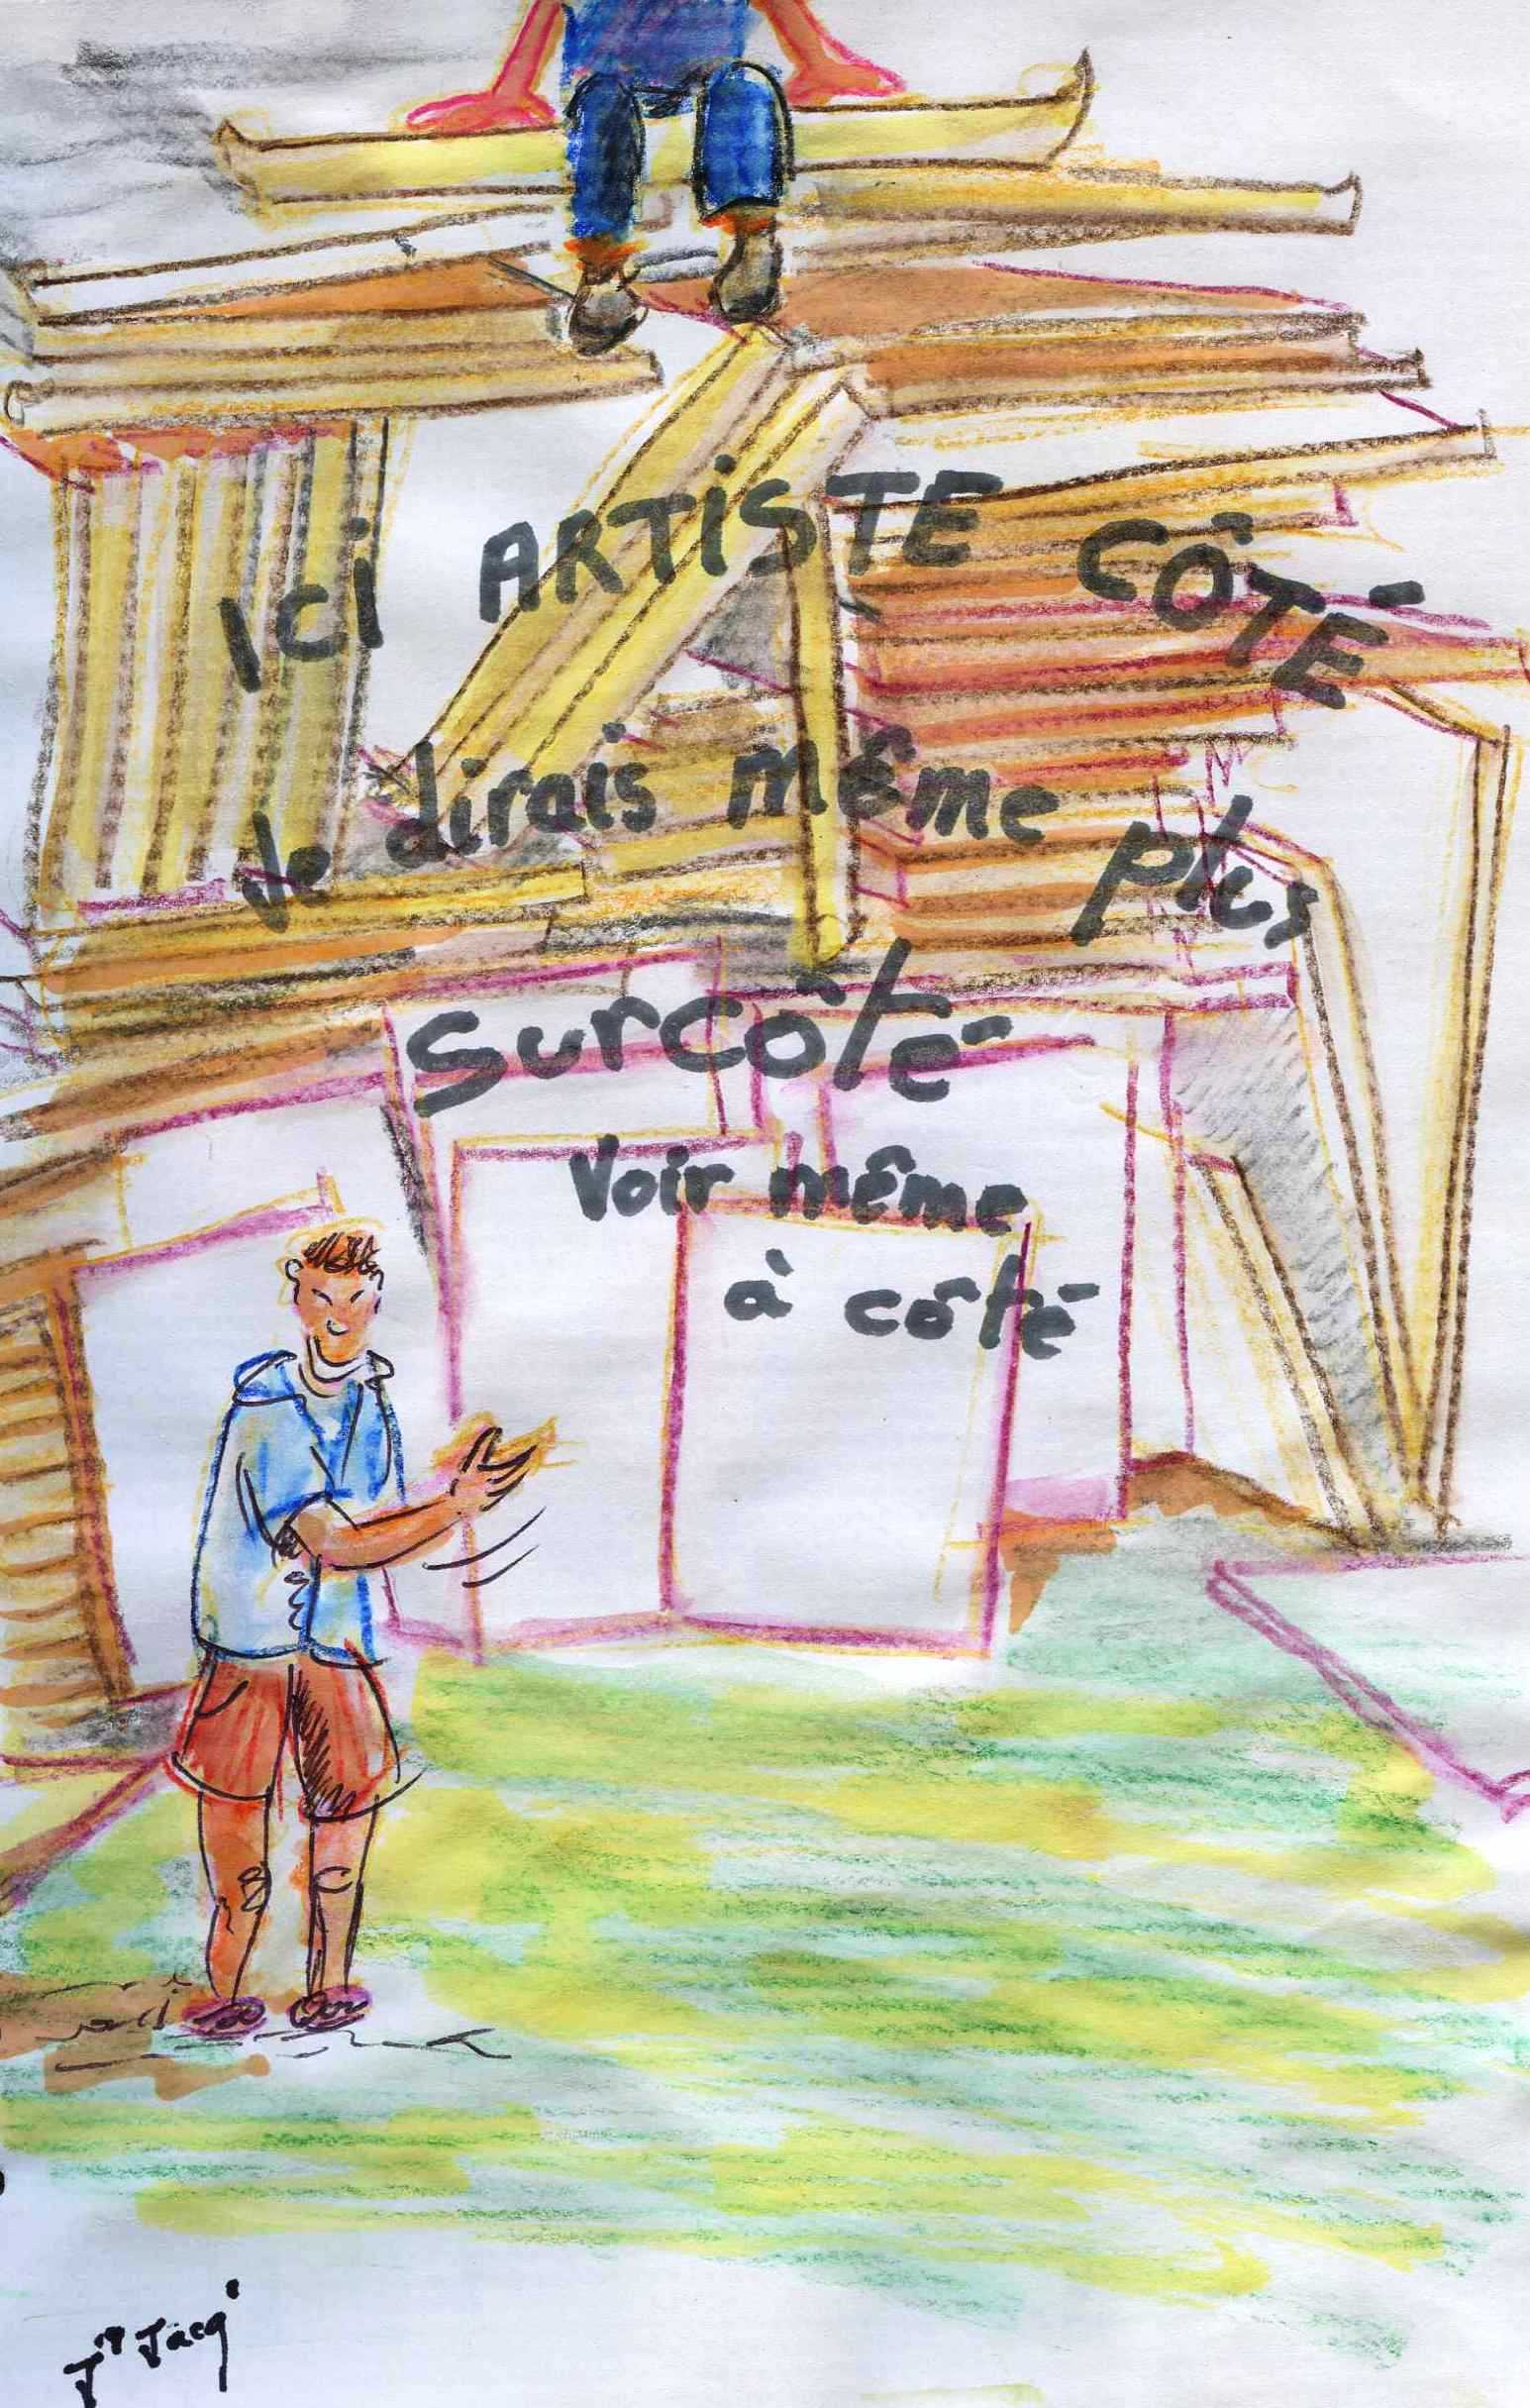 ici ARTiSTE CÔTÉ
Je dirais même plus
surcôté
Voir même
à côté